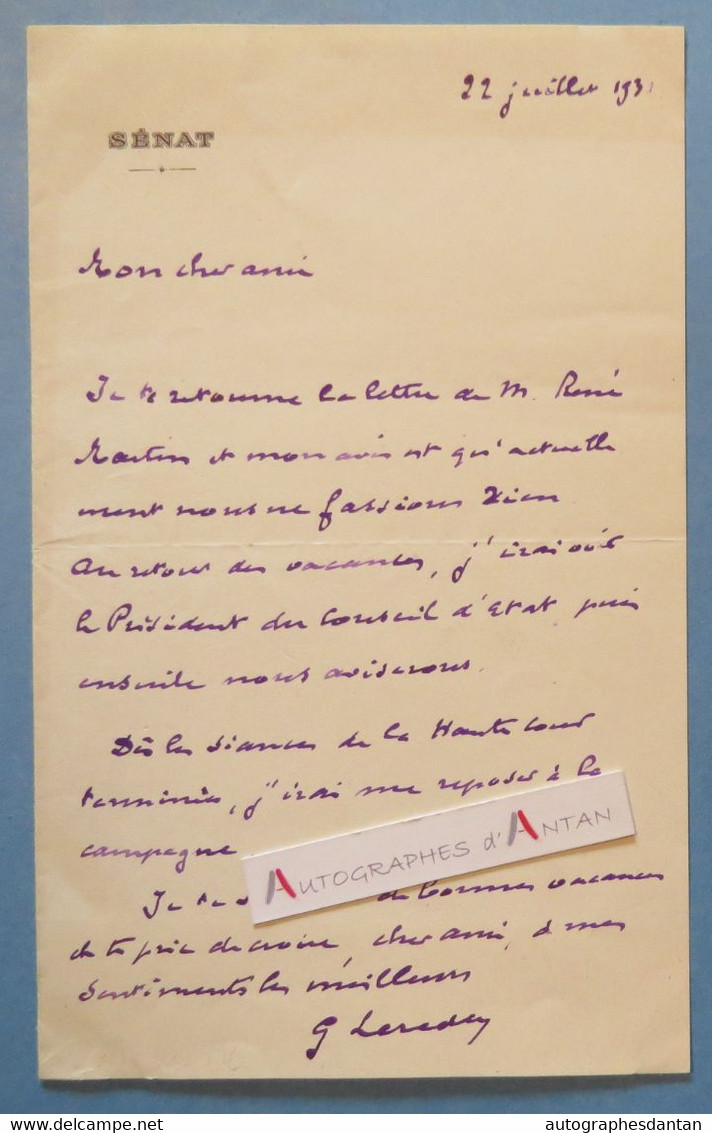 22 juillet 1931
SÉNAT
Mon cher ami
Je te retourne la lettre de M. René
Martin et mon avis est qu'actuelle
ment nous ne fassions rien.
Au retour des vacances, j'irai voir
le Président du Conseil d'Etat puis
ensuite nous aviserons.
Dès les séances de la Haute Cour
terminées, j'irai me reposer à la
campagne
AUTOGRAPHES d'ANTAN
Je te de bonnes vacances
et te prie de croire, cher ami, à mes
sentiments les meilleurs
G
delcampe.net
autographesdantan